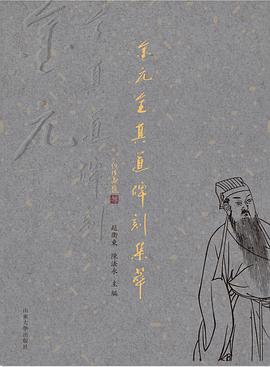 金元全真道碑刻集萃
趙衛東 陳法永 主編
金元
全真道碑刻
山東大學出版社